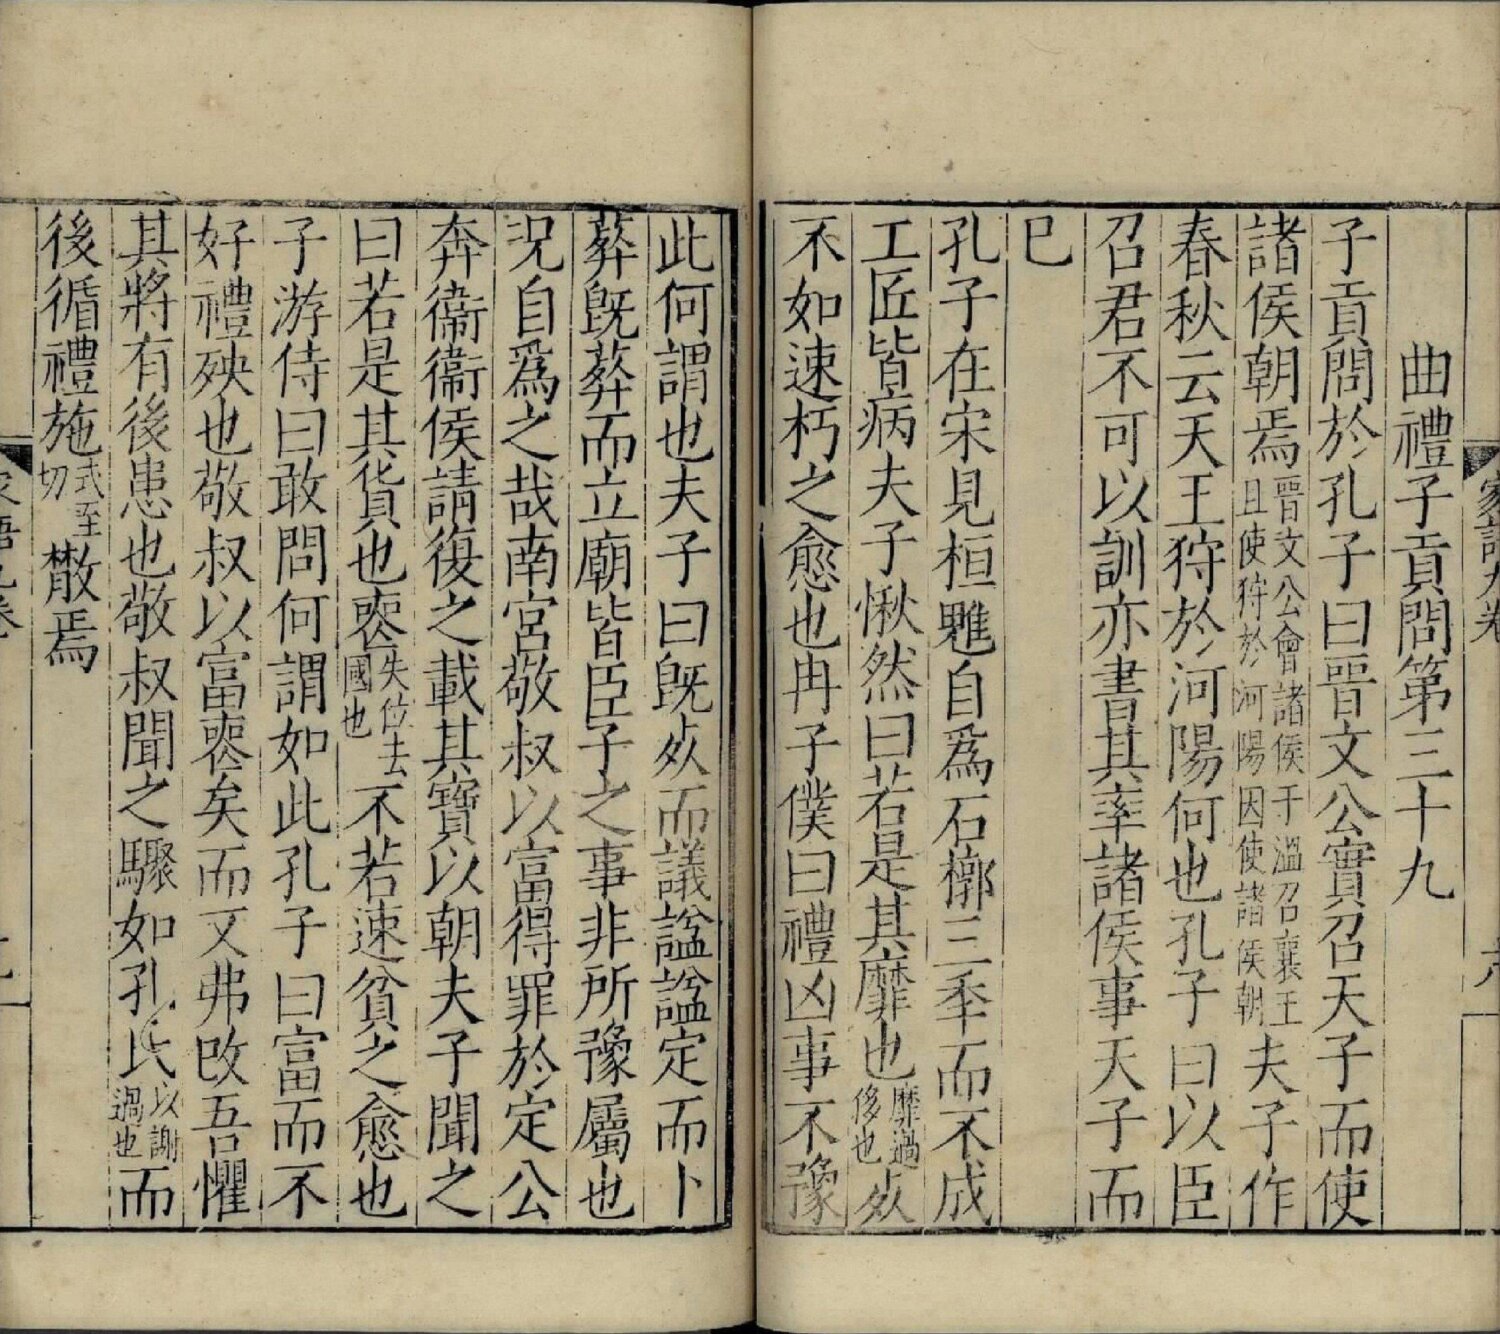 家語九卷
曲禮子貢問第三十九
子貢問於孔子曰晉文公實召天子而使
諸侯朝焉晉文公會諸侯于溫召襄王且使狩於河陽因使諸侯朝夫子作
春秋云天王狩於河陽何也孔子曰以臣
召君不可以訓亦書其率諸侯事天子而
已
孔子在宋見桓魋自爲石槨三秊而不成
工匠皆病夫子愀然曰若是其靡也靡過侈也㱙
不如速朽之愈也冉子僕曰禮凶事不豫
此何謂也夫子曰旣㱙而議謚謚定而卜
葬旣葬而立廟皆臣子之事非所豫屬也
況自爲之哉南宮敬叔以富得罪於定公
奔衞衞侯請復之載其寶以朝夫子聞之
曰若是其貨也喪失位去國也不若速貧之愈也
子游侍曰敢問何謂如此孔子曰富而不
好禮殃也敬叔以富喪矣而又弗改吾懼
其將有後患也敬叔聞之驟如孔氏以謝過也而
後循禮施式至切散焉